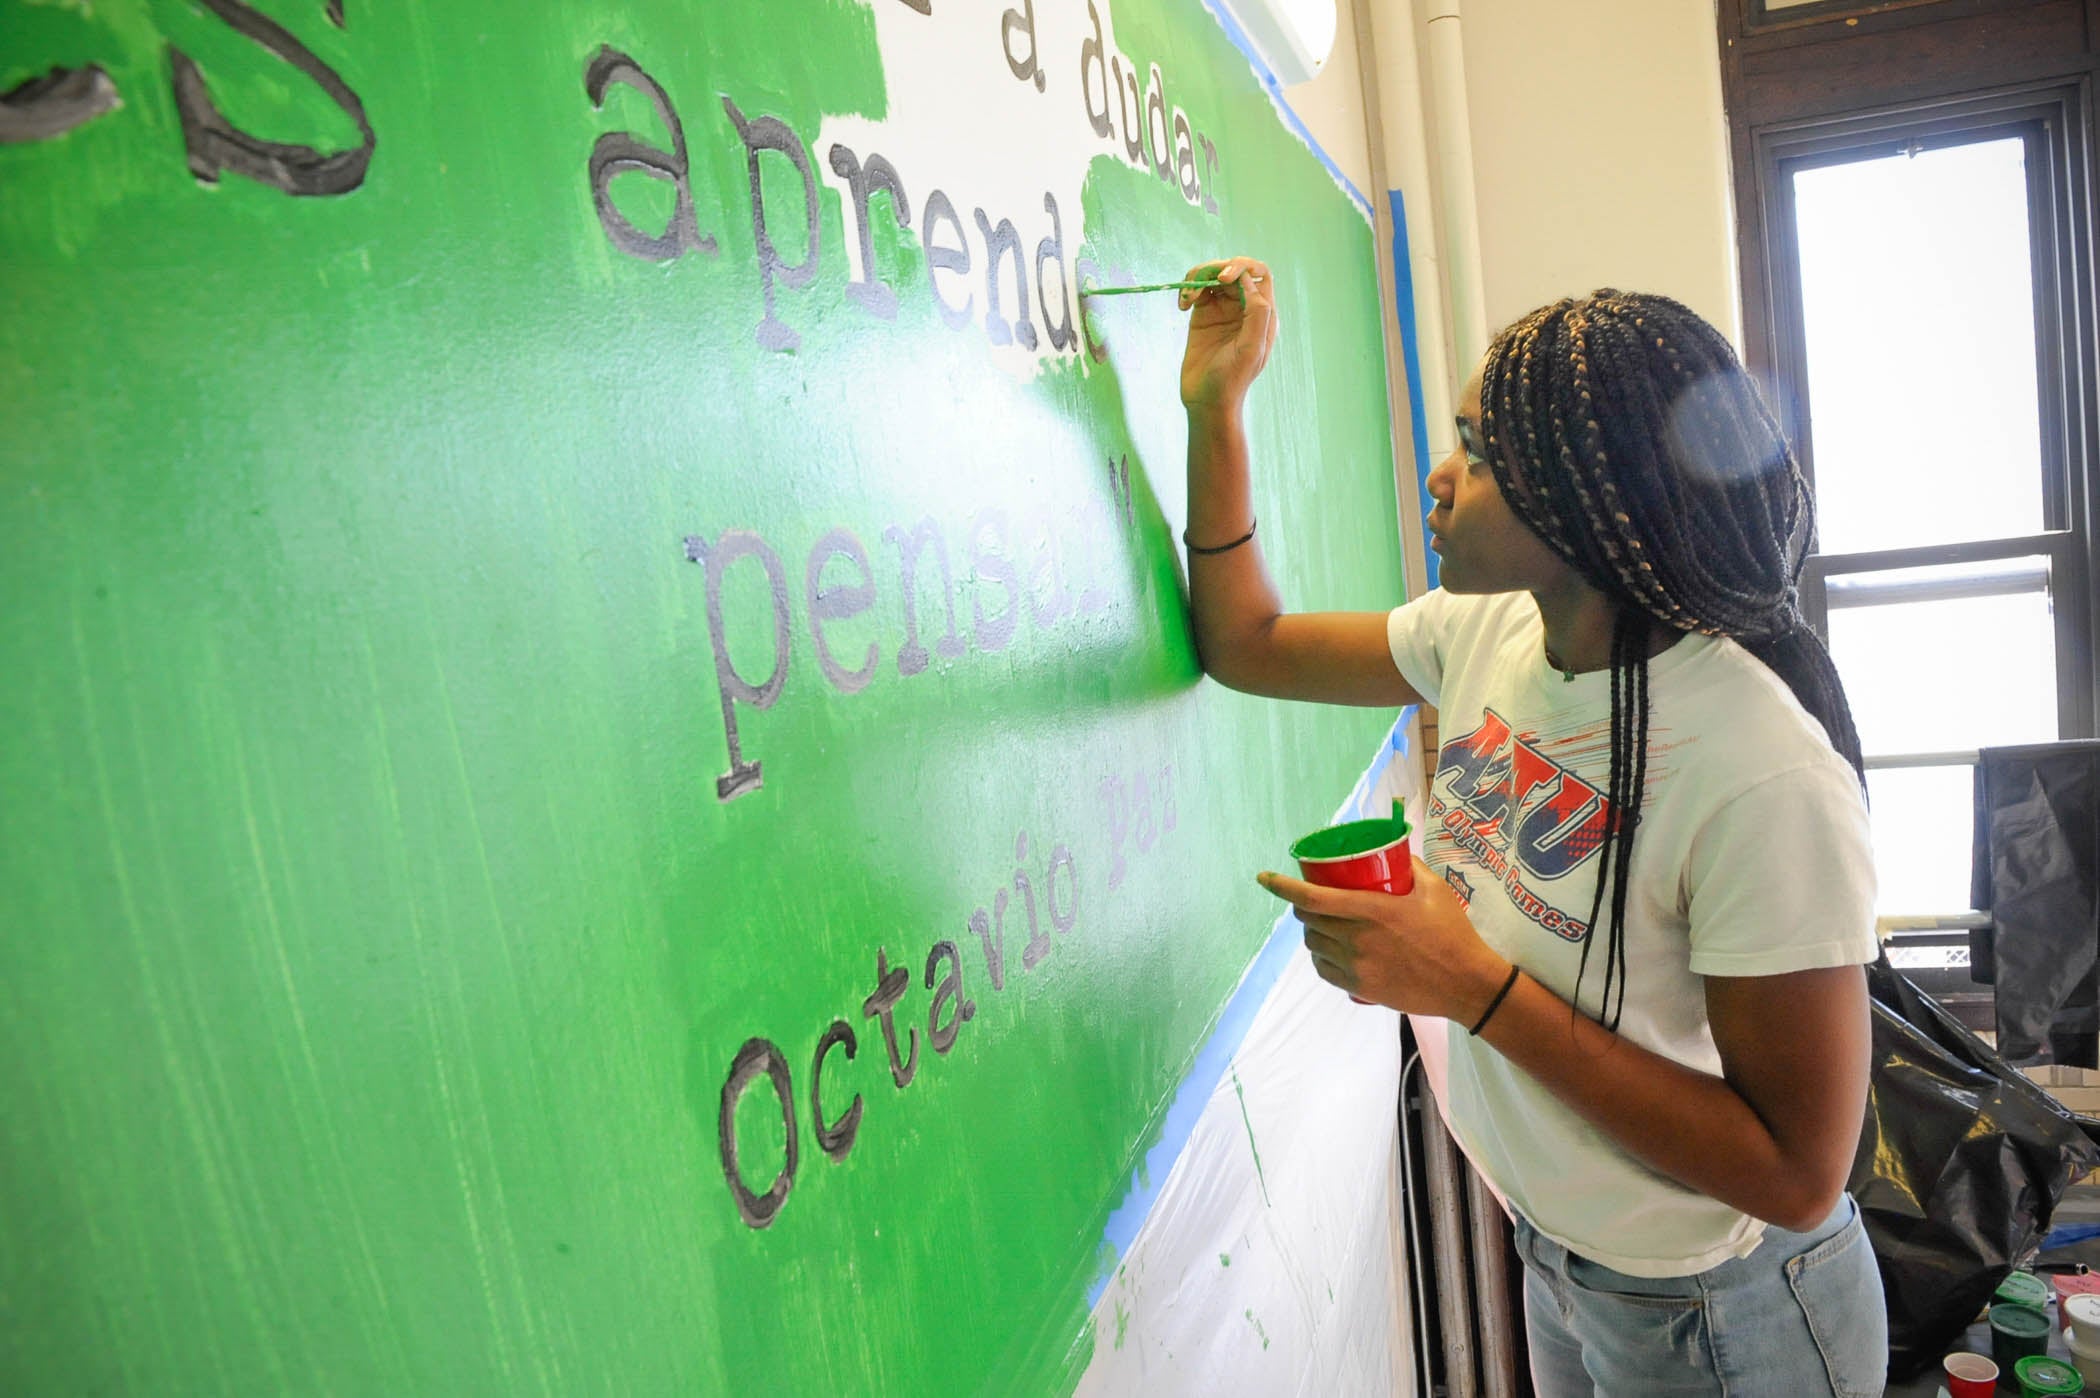 es
a dudar
aprender
pensar"
Octavio Paz
AAU
Jr Olympic Games